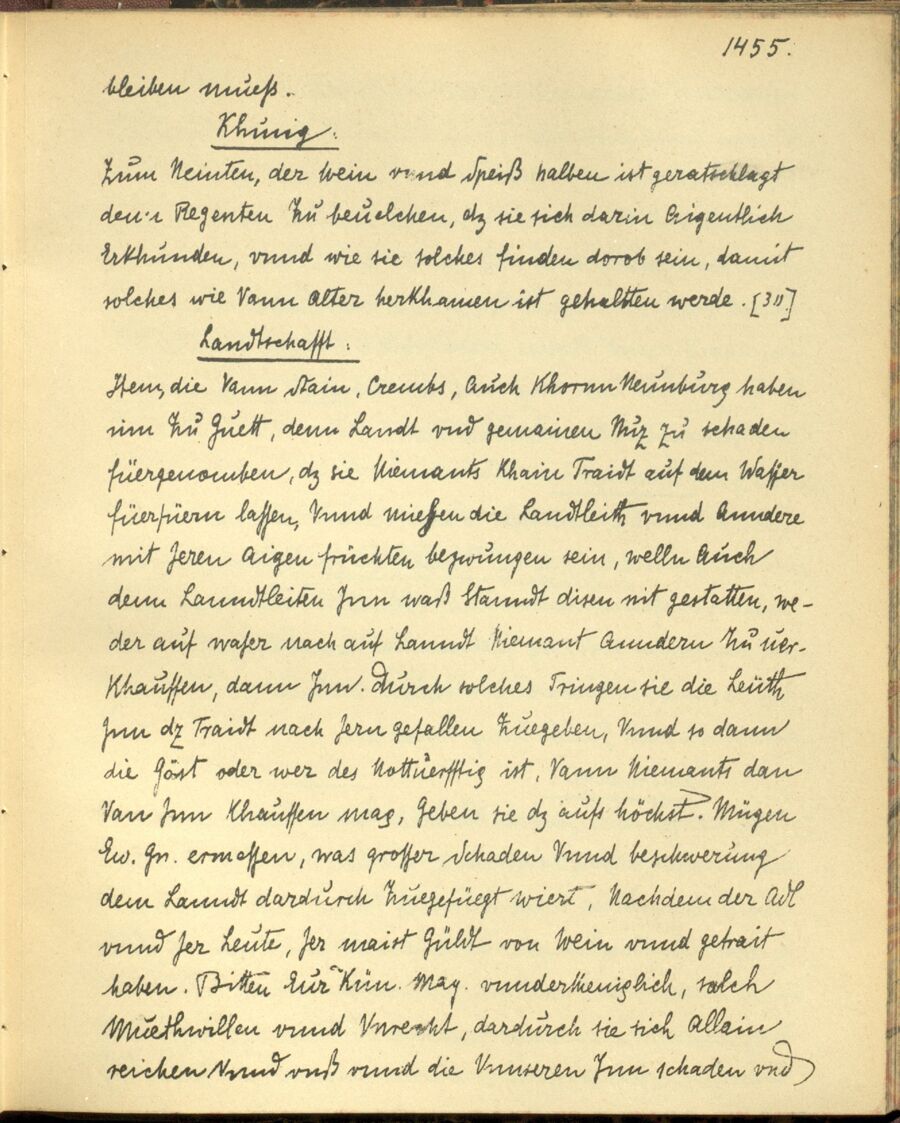 1455.
bleiben muess.
Khünig:
Zum Neinten, der Wein vnnd Speiß halben ist geratschlagt
denen Regenten Zu beuelchen, dz sie sich darin Aigentlich
Erkhunden, vnnd wie sie solches finden dorob sein, damit
solches wie Vann Alter herkhamen ist gehaltten werde. [30]
Landtschafft:
Item, die Vann Stain, Crembs, Auch Khornn Neunburg haben
inn Zu Guett, denn Landt vnd gemainen Nuz zu schaden
füergenomben, dz sie Niemants Khain Traidt auf dem Wasser
füerfüern lassen, Vnnd miessen die Landleith vnnd Anndere
mit Jeren Aigen früchten bezwungen sein, welln Auch
denn Lanndtleiten Jnn waß Stanndt disen nit gestatten, we-
der auf waser nach auf Lanndt Niemant Anndern Zu uer-
Khauffen, dann Jnn. Durch solches Tringen sie die Leüth
Jnn dz Traidt nach Jern gefallen Zuegeben, Vnnd so dann
die Göst oder wer des Nottuerfftig ist, Vann Niemants dan
Van Jnn Khauffen mag, Geben sie dz aufs höchst. Mügen
Ew. Gn. ermessen, was grosser Schaden Vnnd beschwerung
dem Lanndt dardurch Zuegefüegt wiert, Nachdem der Adl
vnnd Jer Leute, Jer maist Güldt von Wein vnnd getrait
haben. Bitten Eur Kün. May. vnndertheniglich, solch
Muethwillen vnnd Vnrecht, dardurch sie sich Allain
reichen Vnnd vnß vnnd die Vnnseren Jnn schaden vnd